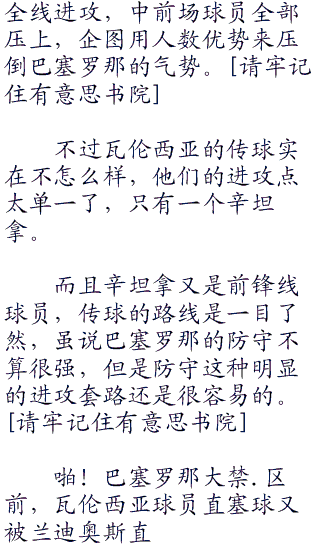 全线进攻，中前场球员全部
压上，企图用人数优势来压
倒巴塞罗那的气势。[请牢记
住有意思书院]
不过瓦伦西亚的传球实
在不怎么样，他们的进攻点
太单一了，只有一个辛坦
拿。
而且辛坦拿又是前锋线
球员，传球的路线是一目了
然，虽说巴塞罗那的防守不
算很强，但是防守这种明显
的进攻套路还是很容易的。
[请牢记住有意思书院]
啪！巴塞罗那大禁.区
前，瓦伦西亚球员直塞球又
被兰迪奥斯直